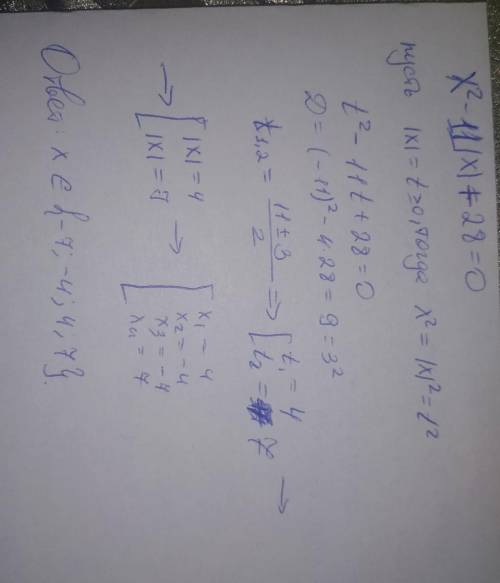 x² - 11|x| + 28 = 0
пусть |x| = t ≥ 0, тогда x² = |x|² = t²
t² - 11t + 28 = 0
D = (-11)² - 4·28 = 9 = 3²
t₁,₂ = (11 ± 3)/2 ⇒ [ t₁ = 4
t₂ = 7 →
→ [ |x| = 4
|x| = 7 → [ x₁ = 4
x₂ = -4
x₃ = -7
x₄ = 7
Ответ: x ∈ {-7; -4; 4; 7}.